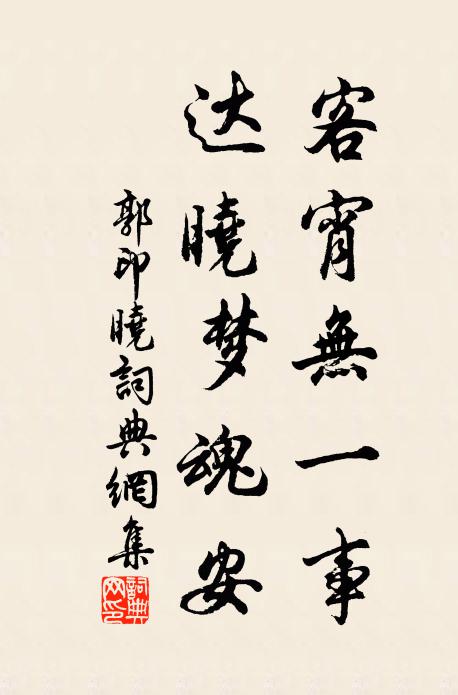 客宵無一事
达曉梦魂安
郭印曉詞典網集
詞典网印